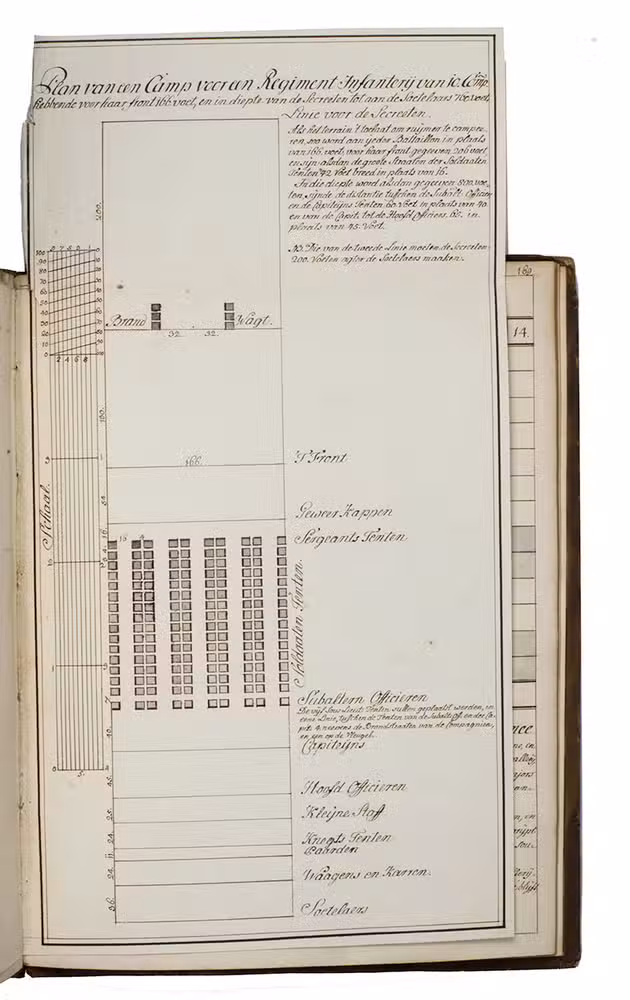 Plan van een Camp voor een Regiment Infanterij van 10. Comp.
hebbende voor haar front 166. voet, en in diepte van de Secreeten tot aan de Soetelaers 760. voet.
Linie voor de Secreeten.
Als het terrain 't toelaat om ruijmer te campee-
ren, soo word aan jeder Battaillon in plaats
van 166. voet, voor haar front gegeeven 206 voet
en sijn alsdan de groote Straaten der Soldaaten
Tenten 42 voet breed in plaats van 16.
In die diepte word alsdan gegeeven 800. voe-
ten, sijnde de distantie tusschen de Subalt. Officier
en de Capiteijns Tenten 60. voet in plaats van 40.
en van de Capit. tot de Hoofd Officiers. 65. in
plaats van 45. voet.
NB. Die van de tweede Linie moeten de Secreeten
200. voeten agter de Soetelaers maaken.
200.
Brand Wagt.
32. 32.
100.
166.
'T Front
50.
Geweer Kappen
Sergeants Tenten
Schaal.
Soldaaten Tenten
Subaltern Officieren
De vijf Sous Lieut: Tenten sullen geplaatst worden, in
eene Linie, tusschen de Tenten van de Subalt: off: en der Ca-
pit: 4. nevens de Brandstraaten van de Compagnien,
en een op de Vleugel.
Capiteijns
45.
Hoofd Officieren
25.
Kleijne Staff
Knegts Tenten
Paarden
Waagens en Karren.
36.
Soetelaers
160
14.